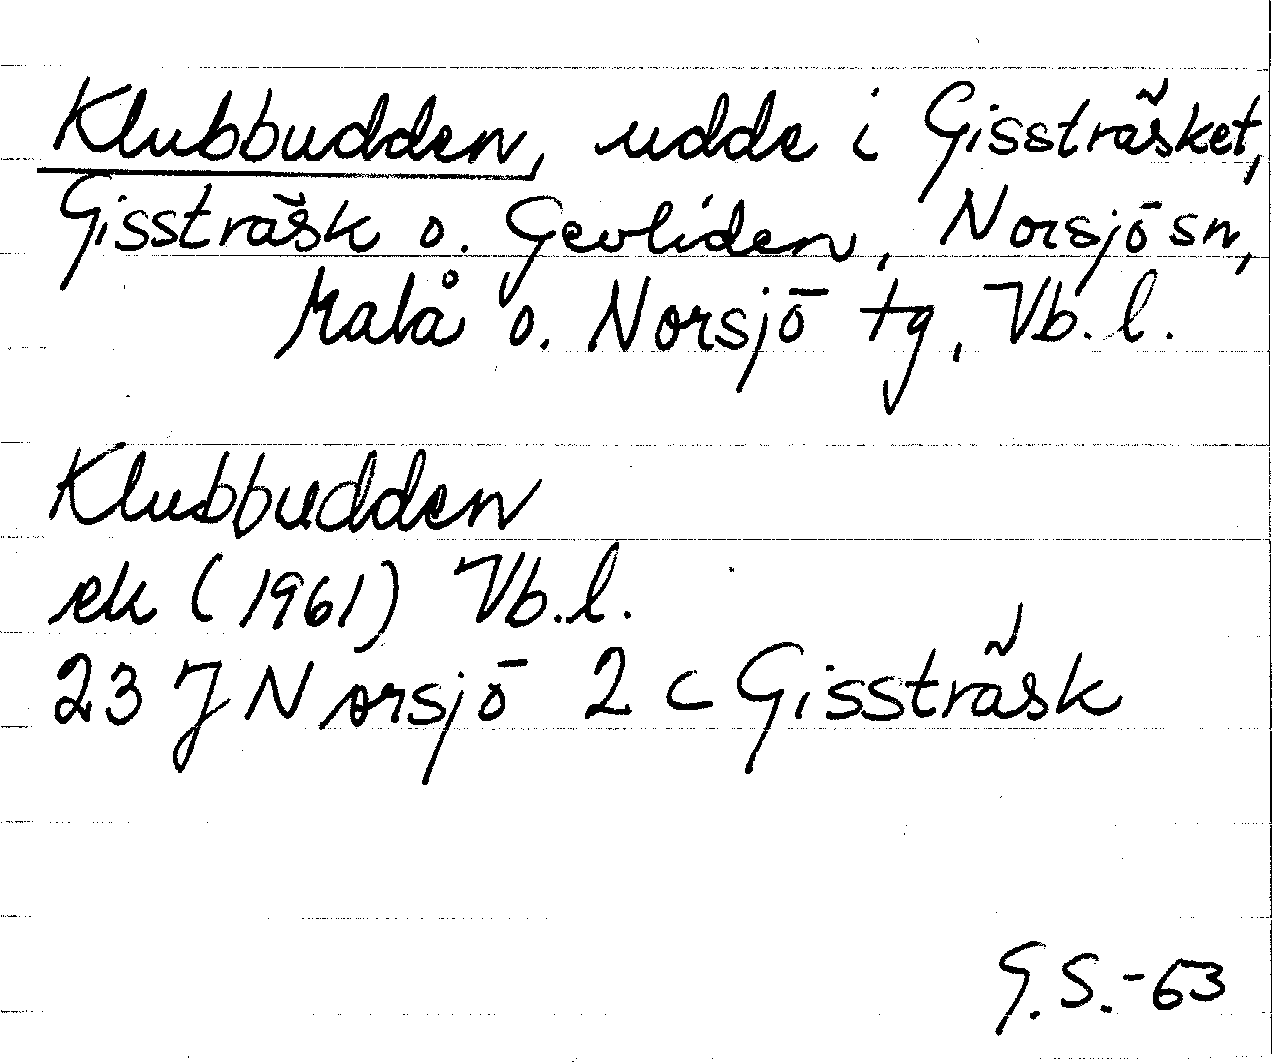 Klubbudden, udde i Gissträsket,
Gissträsk o. Gevliden, Norsjö sn,
Malå o. Norsjö tg, Vb. l.
Klubbudden
ek (1961) Vb. l.
23 J Norsjö 2 c Gissträsk
G.S.-63